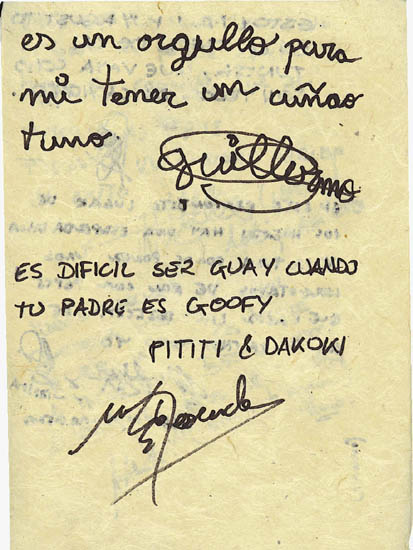 es un orgullo para
mi tener un cuñao
tuno.
Guillermo
ES DIFICIL SER GUAY CUANDO
TU PADRE ES GOOFY
PITITI & DAKOKI